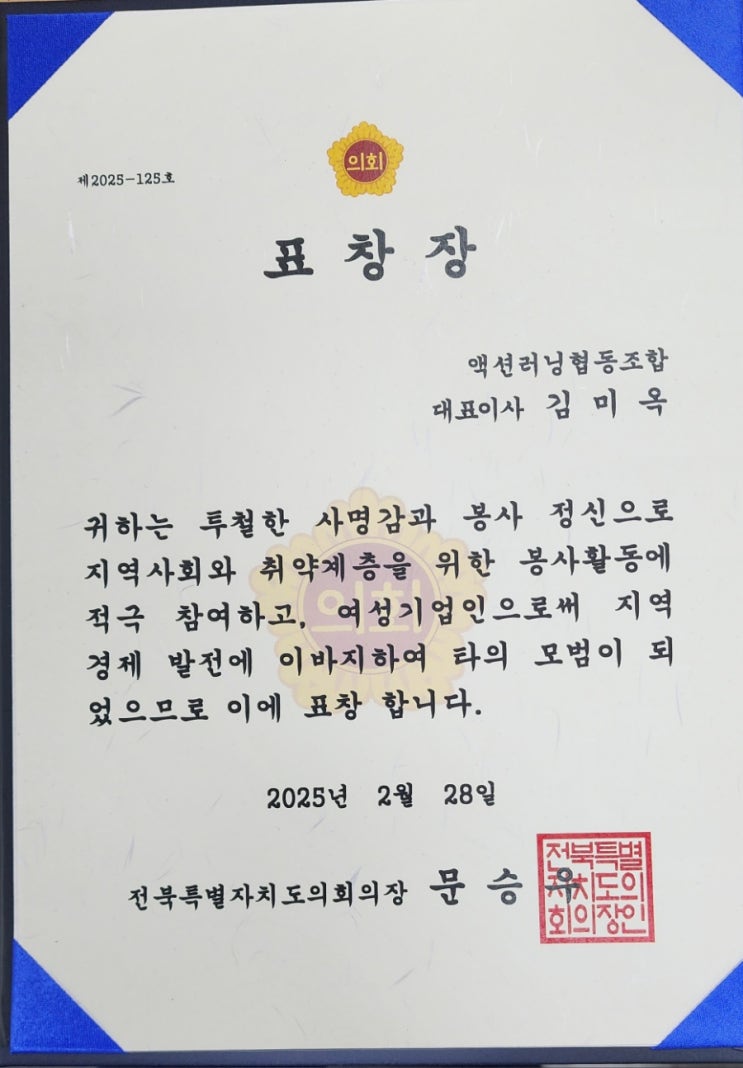 의회
제2025-125호
표 창 장
액션러닝협동조합
대표이사 김 미 옥
귀하는 투철한 사명감과 봉사 정신으로
지역사회와 취약계층을 위한 봉사활동에
적극 참여하고, 여성기업인으로써 지역
경제 발전에 이바지하여 타의 모범이 되
었으므로 이에 표창 합니다.
의회
2025년 2월 28일
전북특별자치도의회의장 문 승 우
전북특별
자치도의
회의장인